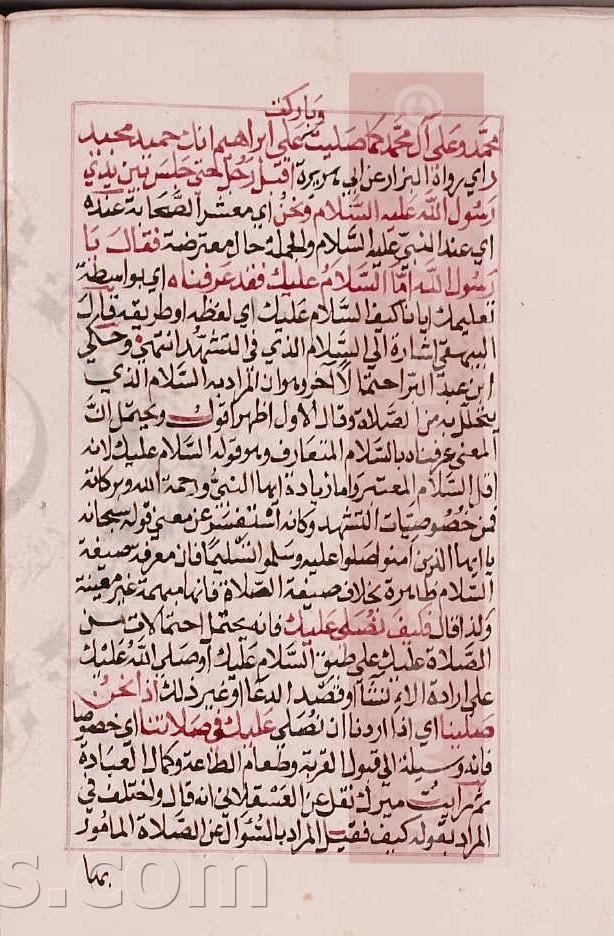 وبارك
محمد وعلى آل محمد كما صليت على ابراهيم انك حميد مجيد
راي رواه البزار عن ابي هريرة اقبل رجل حتى جلس بين يدي
رسول الله عليه السلام ونحن اي معشر الصحابة عنده
اي عند النبي عليه السلام والجملة حال معترضة فقال يا
رسول الله اما السلام عليك فقد عرفناه اي بواسطة
تعليمك ايانا كيف السلام عليك اي لفظه او طريقه قال
البيهقي اشارة الى السلام الذي في التشهد انتهى وحكى
ابن عبد البر احتمالا آخر وهو ان المراد به السلام الذي
يتحلل به من الصلاة وقال الاول اظهر اقول ويحتمل ان
المعنى عرفناه بالسلام المتعارف وهو قوله السلام عليك لانه
اقل السلام المعتبر واما زيادة ايها النبي ورحمة الله وبركاته
فمن خصوصيات التشهد وكانه استفسر عن معنى قوله سبحانه
يا ايها الذين آمنوا صلوا عليه وسلموا تسليما فان معرفة صيغة
السلام ظاهرة بخلاف صيغة الصلاة فانها مبهمة غير معينة
ولذا قال فكيف نصلي عليك فانه يحتمل احتمالات من
الصلاة عليك على طبق السلام عليك او صلى الله عليك
على ارادة الانشاء او قصد الدعا او غير ذلك اذا نحن
صلينا اي اذا اردنا ان نصلي عليك في صلاتنا اي خصوصا
فانه وسيلة الى قبول القربة وطعام الطاعة وكمال العبادة
ثم رايت ميرك نقل عن العسقلاني انه قال واختلف في
المراد بقوله كيف فقيل المراد بالسؤال عن الصلاة المامور
بها
s.com